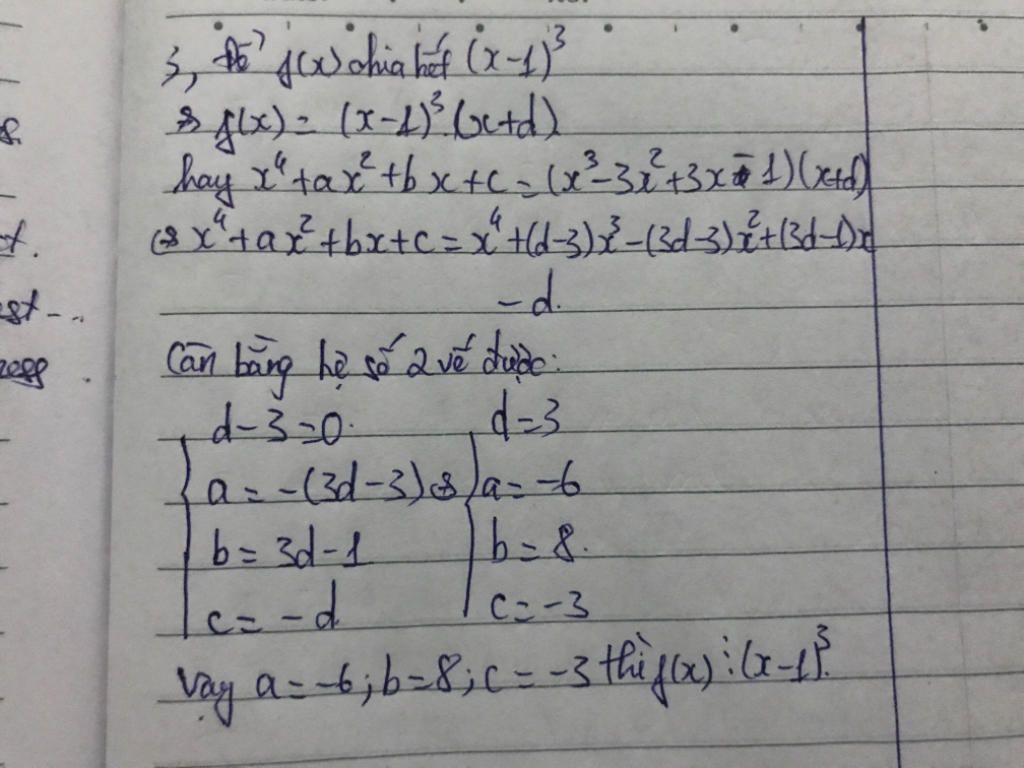 3, Để f(x) chia hết (x-1)³
⇔ f(x) = (x-1)³.(x+d)
hay x⁴+ax²+bx+c=(x³-3x²+3x-1)(x+d)
⇔ x⁴+ax²+bx+c=x⁴+(d-3)x³-(3d-3)x²+(3d-1)x
-d.
Cân bằng hệ số 2 vế được:
d-3=0. d=3
a=-(3d-3) ⇔ a=-6
b=3d-1 b=8.
c=-d c=-3
Vậy a=-6; b=8; c=-3 thì f(x)⋮(x-1)³.